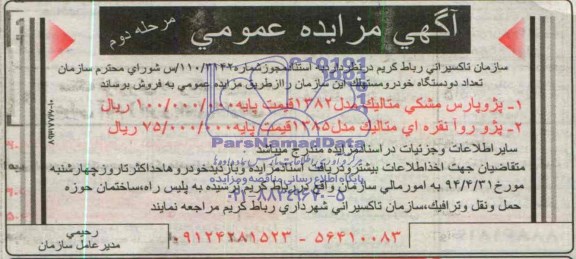 آگهي مزايده عمومي
مرحله دوم
سازمان تاكسيراني رباط كريم درنظردارد به استنادمجوزشماره ۱۱۰/۳۲۴۲/س شوراي محترم سازمان
تعداد دودستگاه خودرومستهلك اين سازمان راازطريق مزايده عمومي به فروش برساند
۱- پژوپارس مشكي متاليك مدل۱۳۸۲قيمت پايه۱۰۰/۰۰۰/۰۰۰ ريال
۲- پژو روآ نقره اي متاليك مدل۱۳۸۵قيمت پايه۷۵/۰۰۰/۰۰۰ ريال
ساير اطلاعات وجزئيات دراسنادمزايده مندرج ميباشد
متقاضيان جهت اخذاطلاعات بيشترودريافت اسنادمزايده وبازديدخودروهاحداكثرتاروزچهارشنبه
مورخ۹۴/۴/۳۱ به امورمالي سازمان واقع دررباط كريم نرسيده به پليس راه،ساختمان حوزه
حمل ونقل وترافيك،سازمان تاكسيراني شهرداري رباط كريم مراجعه نمايند
۰۹۱۲۴۲۸۱۵۲۳ - ۵۶۴۱۰۰۸۳
رحيمي
مديرعامل سازمان
ParsNamadData
پایگاه اطلاع رسانی مناقصه ومزایده
۰۲۱-۸۸۳۴۹۶۷۰-۵